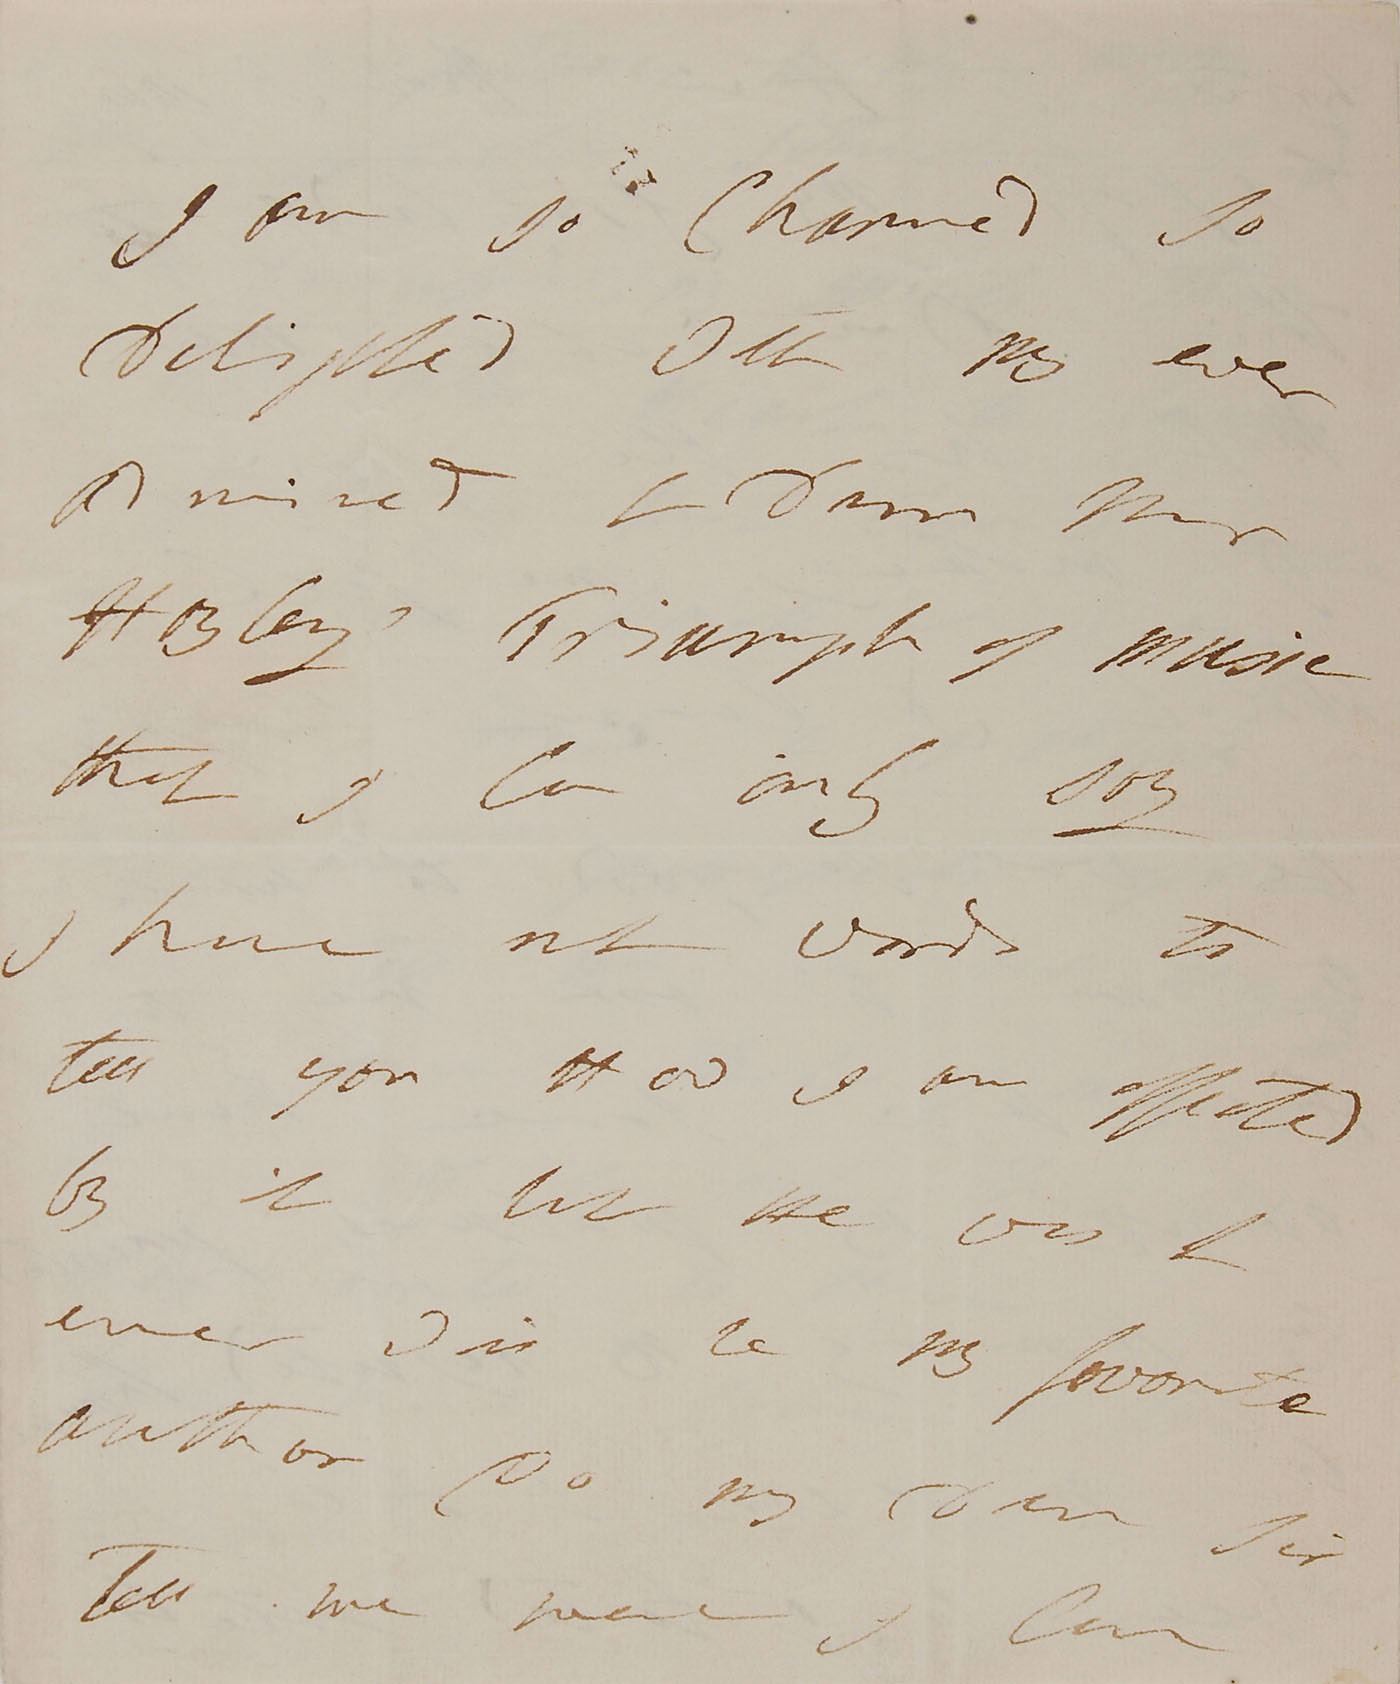 I am so Charmed so
Delighted With my ever
Admired & Dear Mr
Hayley's Triumph of Music
that I can only say
I have not words to
tell you How I am affected
by it but He was &
ever Will be my favorite
author Do my Dear Sir
Tell me were I Can